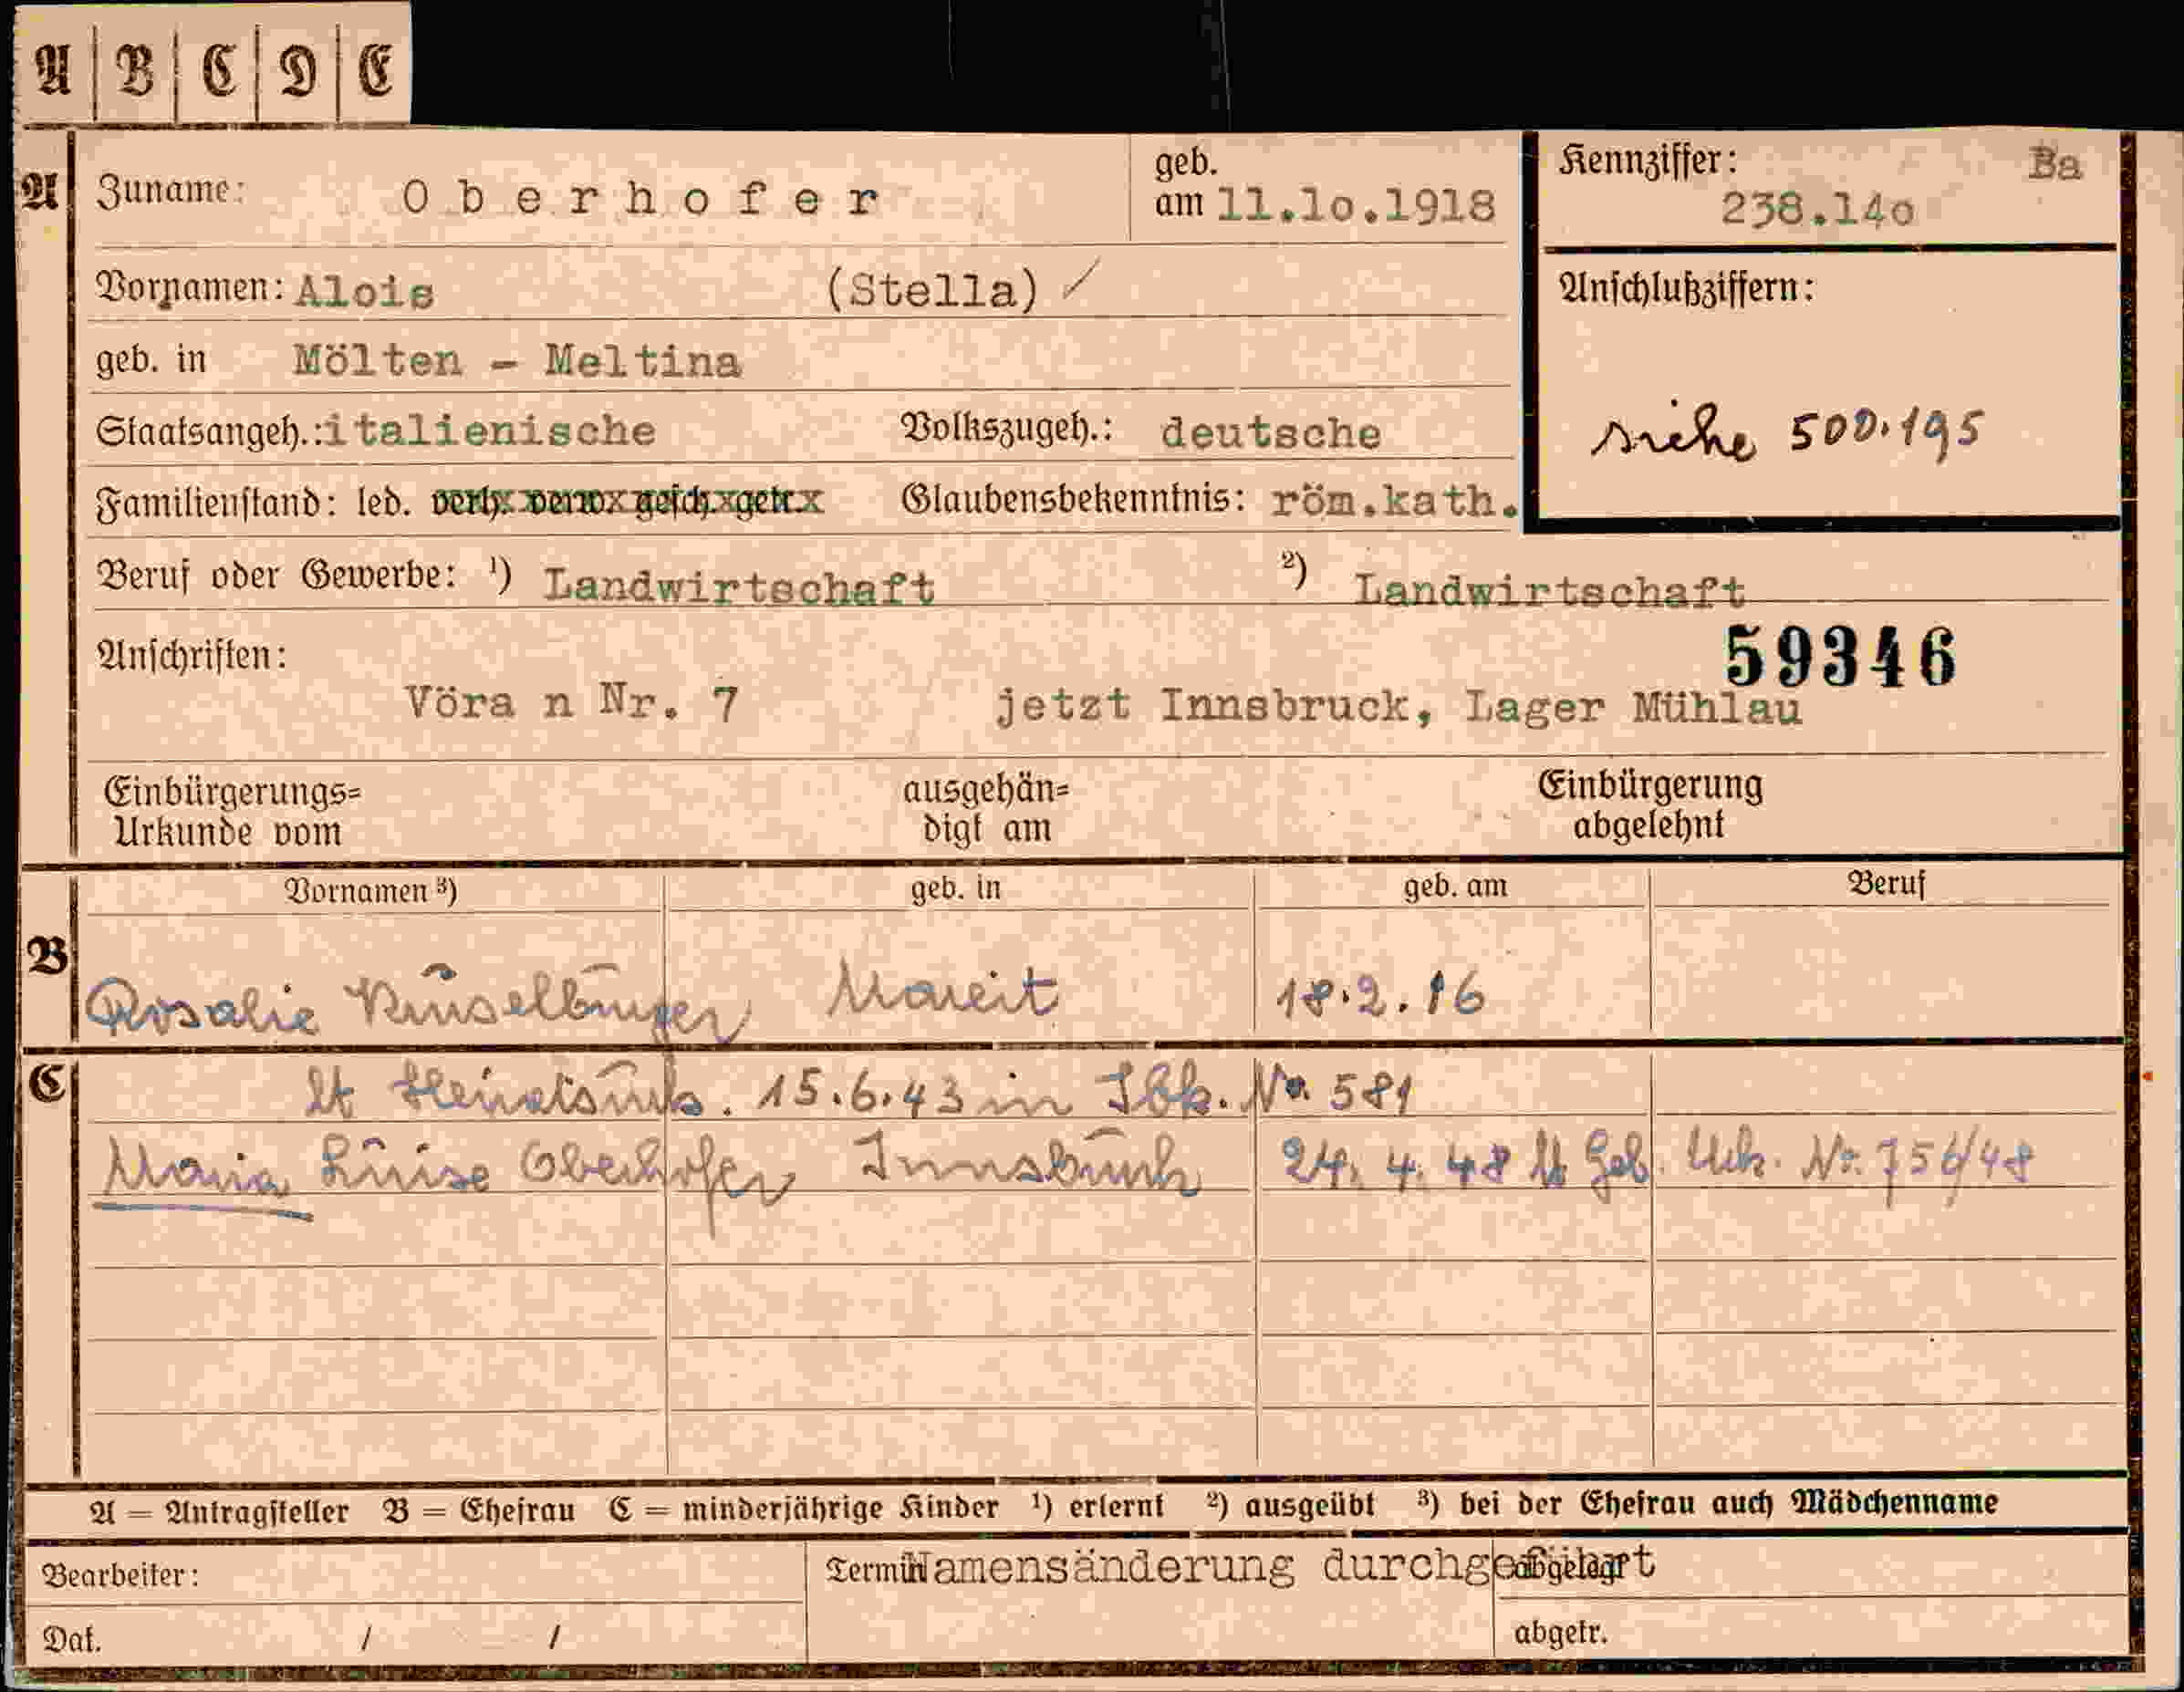 A B C D E
A Zuname: Oberhofer geb. am 11.10.1918 Kennziffer: Ba 238.140
Vornamen: Alois (Stella) / Anschlußziffern:
geb. in Mölten - Meltina
Staatsangeh.: italienische Volkszugeh.: deutsche siehe 500.195
Familienstand: led. verh. verw. gesch. getr. Glaubensbekenntnis: röm.kath.
Beruf oder Gewerbe: ¹) Landwirtschaft ²) Landwirtschaft
Anschriften: 59346
Vöra n Nr. 7 jetzt Innsbruck, Lager Mühlau
Einbürgerungs= ausgehän= Einbürgerung
Urkunde vom digt am abgelehnt
Vornamen ³) geb. in geb. am Beruf
B Rosalie Mareit 18.2.16
C lt 15.6.43 in Ibk. No. 581
Maria Luise Oberhofer Innsbruck 24. 4. 48 lt Geb. Urk. Nr. /48
A = Antragsteller B = Ehefrau C = minderjährige Kinder ¹) erlernt ²) ausgeübt ³) bei der Ehefrau auch Mädchenname
Bearbeiter: Termin Namensänderung durchgeführt abgelegt
Dat. / / abgetr.